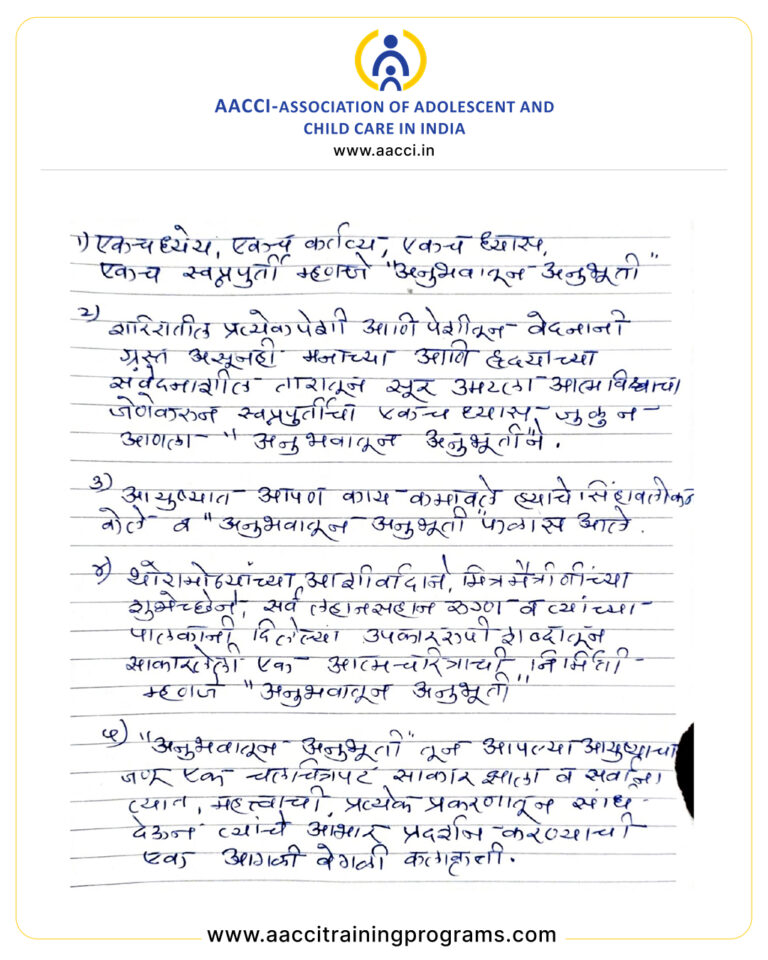 AACCI-ASSOCIATION OF ADOLESCENT AND
CHILD CARE IN INDIA
www.aacci.in
१) एकच ध्येय, एकच कर्तव्य, एकच ध्यास,
एकच स्वप्नपुर्ती म्हणजे "अनुभवातून अनुभूती"
२)
शरिरातील प्रत्येक पेशी आणि पेशीतून वेदनानी
ग्रस्त असूनही मनाच्या आणि हृदयाच्या
संवेदनाशील तारातून सूर उमटला आत्मविश्वाचा
जेणेकरुन स्वप्नपुर्तीचा एकच ध्यास जुळुन
आणला "अनुभवातून अनुभूतीने".
३) आयुष्यात आपण काय कमावले ह्याचे सिंहावलोकन
केले व "अनुभवातून अनुभूती" फळास आले.
४) थोरामोठ्यांच्या आशीर्वादाने, मित्रमैत्रीणींच्या
शुभेच्छेने, सर्व लहानसहान रुग्ण व त्यांच्या
पालकांनी दिलेल्या उपकाररुपी शब्दातून
साकारलेली एक आत्मचरित्राची निर्मिती
म्हणजे "अनुभवातून अनुभूती"
५) "अनुभवातून अनुभूती" तून आपल्या आयुष्याचा
जणू एक चलचित्रपट साकार झाला व सर्वांना
त्यात, महत्वाची, प्रत्येक प्रकरणातून साथ
देऊन त्यांचे आभार प्रदर्शन करण्याची
एक आगळी वेगळी कलाकृती.
www.aaccitrainingprograms.com